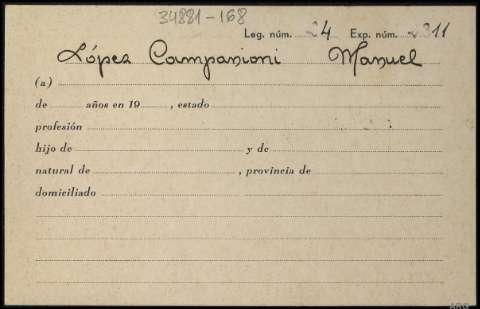 34881-168
Leg. núm. 24 Exp. núm. 2311
López Campanioni Manuel
(a)
de años en 19 , estado
profesión
hijo de y de
natural de , provincia de
domiciliado